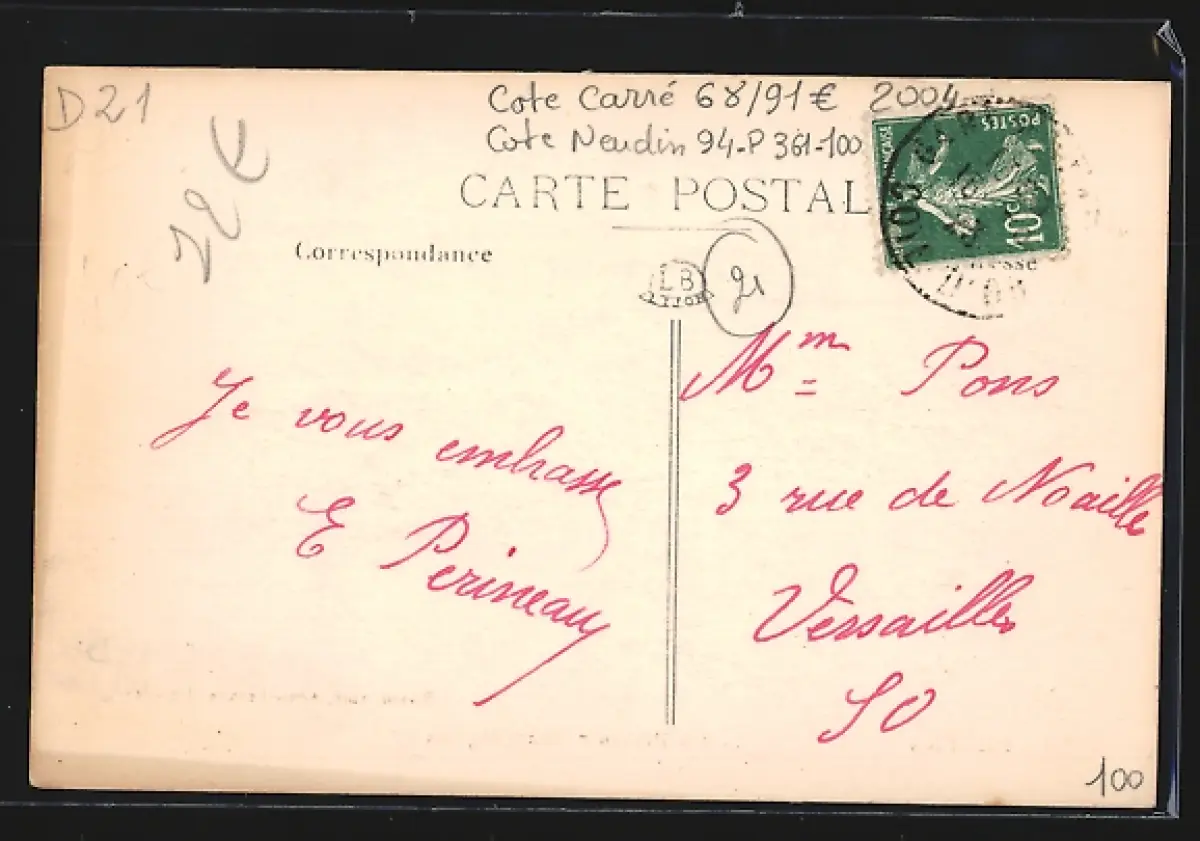 D21
Cote Carré 68/91€ 2004
Cote Neudin 94-P 361-100
CARTE POSTAL
POSTES
10c
Correspondance
LB
21
Je vous embrasse
E Perineau
Mm Pons
3 rue de Noailles
Versailles
SO
100